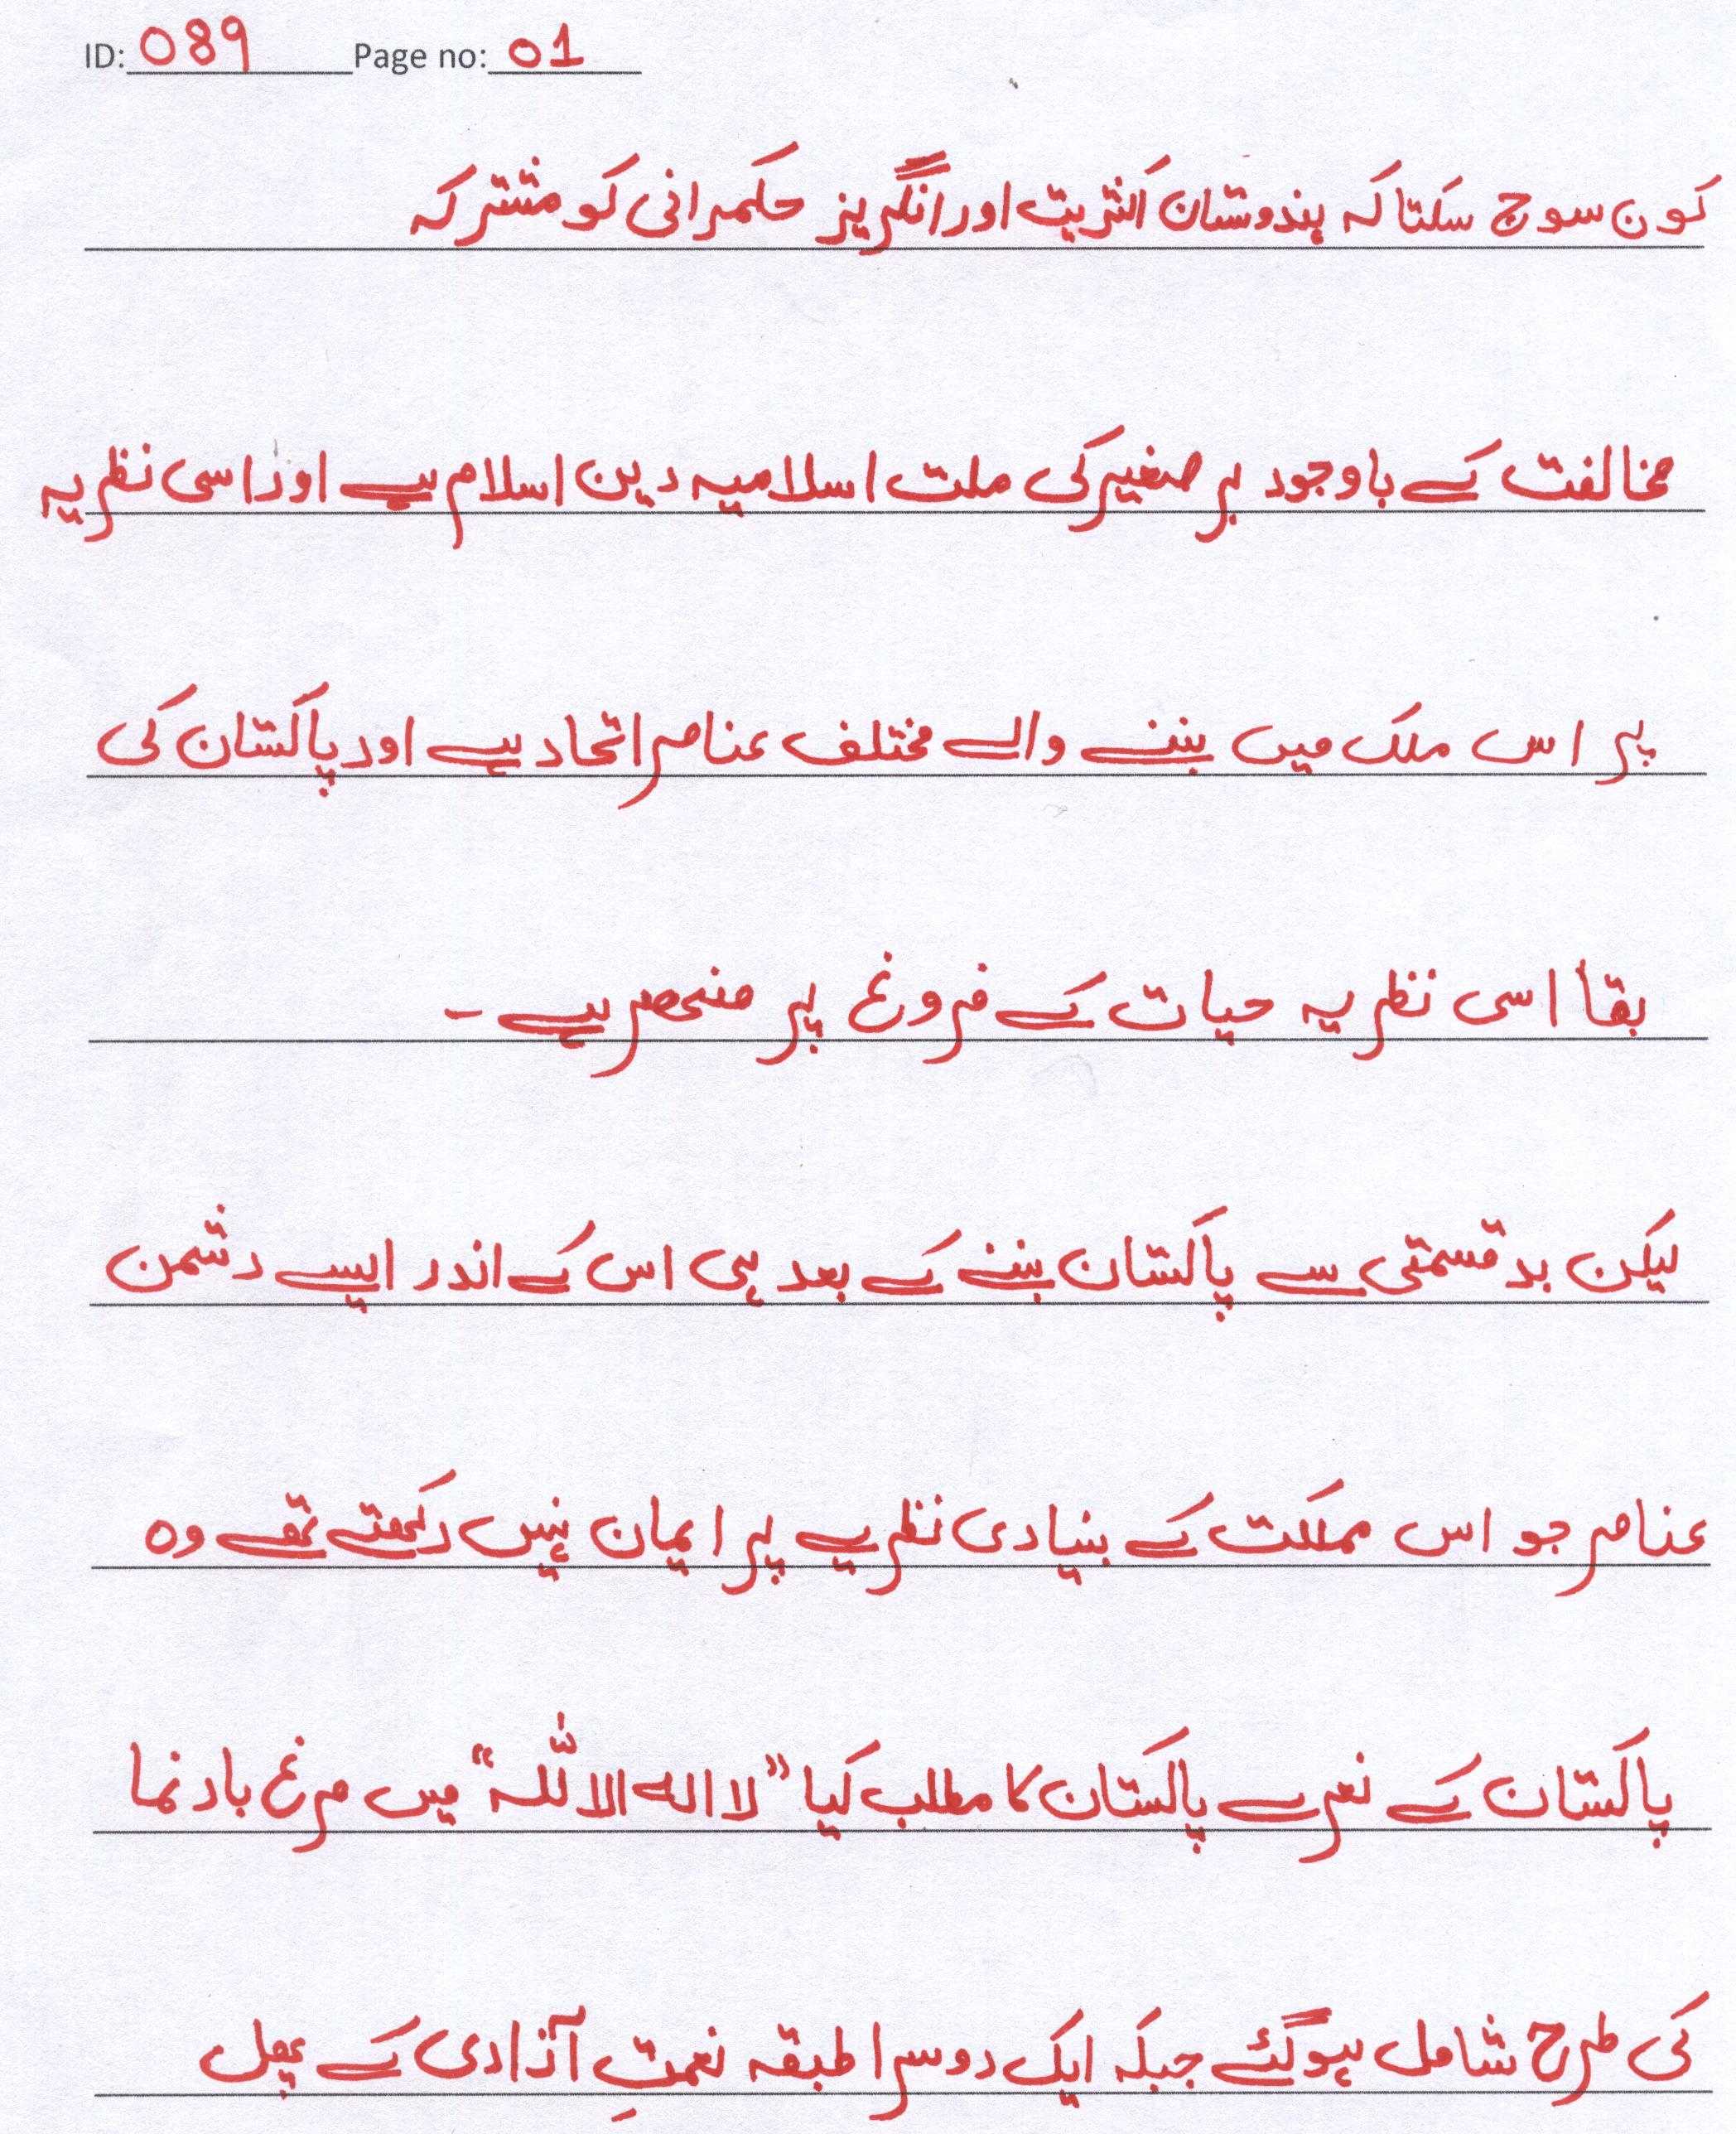 ID: 089 Page no: 01
کون سوچ سکتا کہ ہندوستان اکثریت اور انگریز حکمرانی کو مشترکہ
مخالفت کے باوجود برصغیر کی ملت اسلامیہ دین اسلام ہے اور اسی نظریہ
پر اس ملک میں بننے والے مختلف عناصر اتحاد ہے اور پاکستان کی
بقأ اسی نظریہ حیات کے فروغ پر منحصر ہے ۔
لیکن بد قسمتی سے پاکستان بننے کے بعد ہی اس کے اندر ایسے دشمن
عناصر جو اس مملکت کے بنیادی نظریے پر ایمان نہیں رکھتے تھے وہ
پاکستان کے نعرے پاکستان کا مطلب کیا ”لا الہ الا للّٰہ“ میں مرغ باد نما
کی طرح شامل ہوگئے جبکہ ایک دوسرا طبقہ نعمتِ آزادی کے پھل